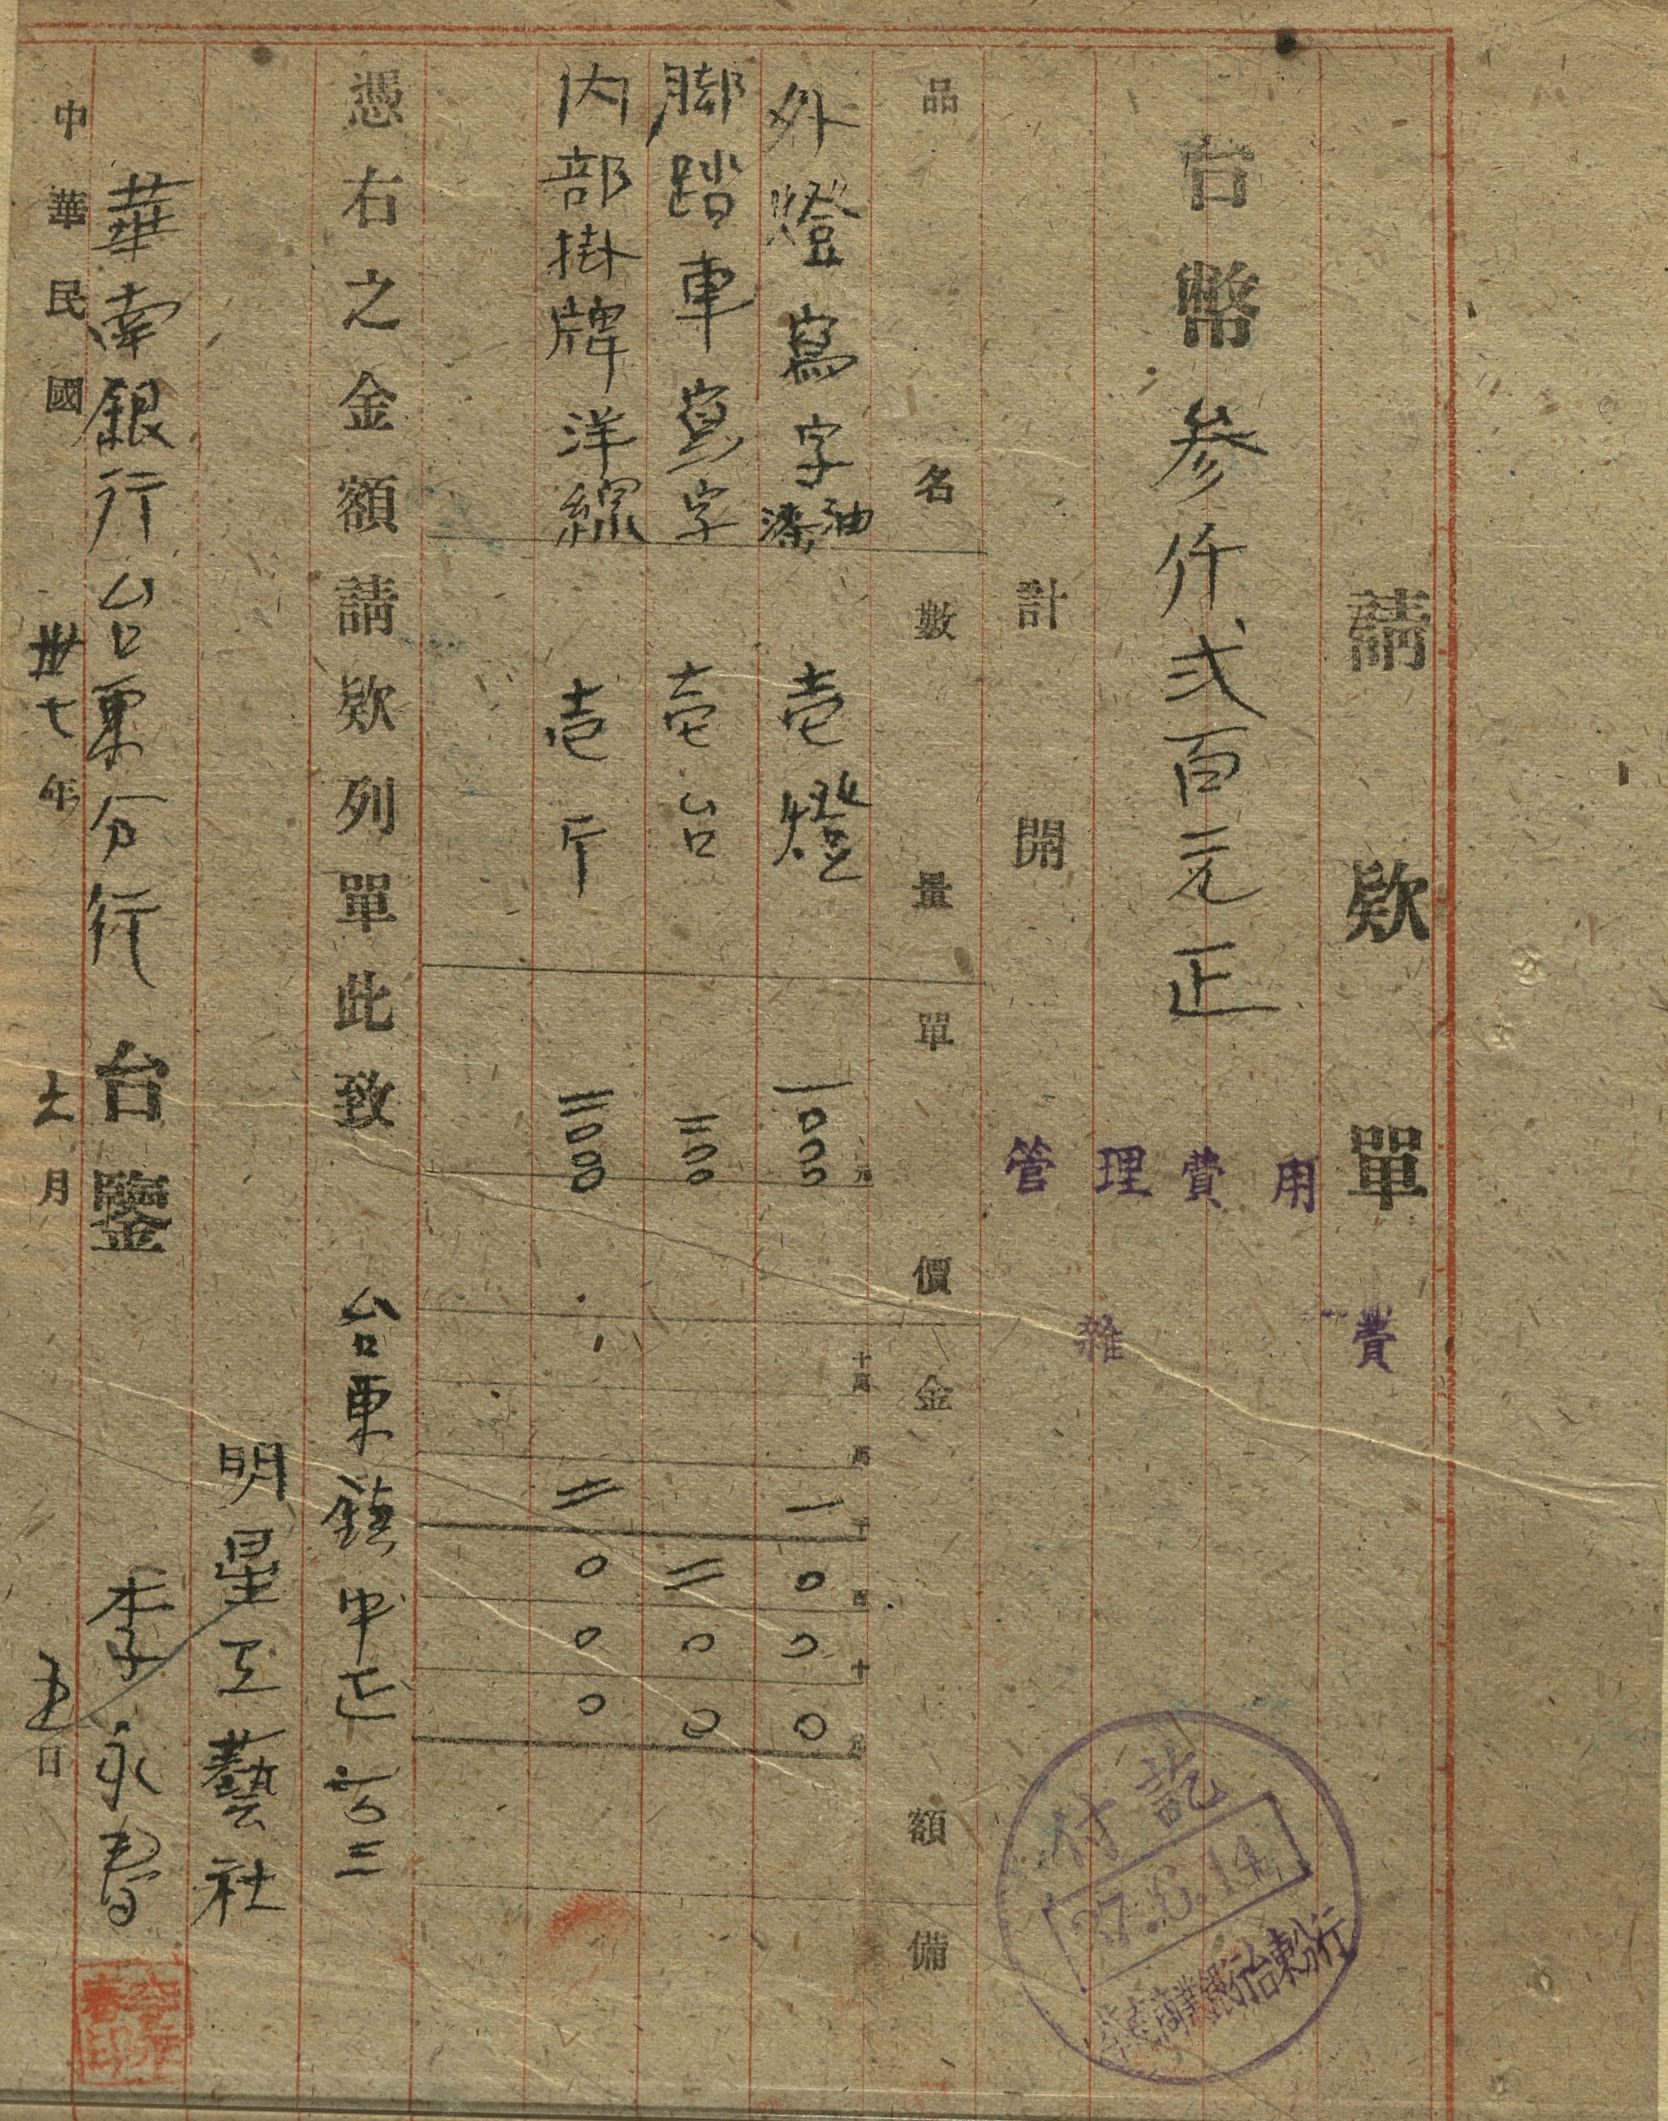 請欵單
台幣參仟弍百元正
管理費用
雜費
計開
品名 數量 單價 金額 備
元 十萬 萬 千 百 十 元
外燈寫字油漆 壱燈 一〇〇〇 一〇〇〇
脚踏車寫字 壱台 二〇〇 二〇〇
内部掛牌洋綜 壱斤 二〇〇〇 二〇〇〇
憑右之金額請欵列單此致
台東鎮中正
明星工藝社
華南銀行台東分行 台鑒
李永春
李永春印
中華民國卅七年 月 日
付訖
37.6.14
華南商業銀行台東分行